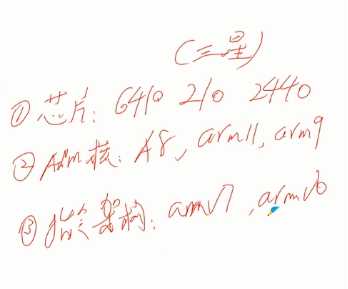 (三星)
① 芯片: 6410 210 2440
② Arm核: A8, arm11, arm9
③ 指令架构: armv7, armv6